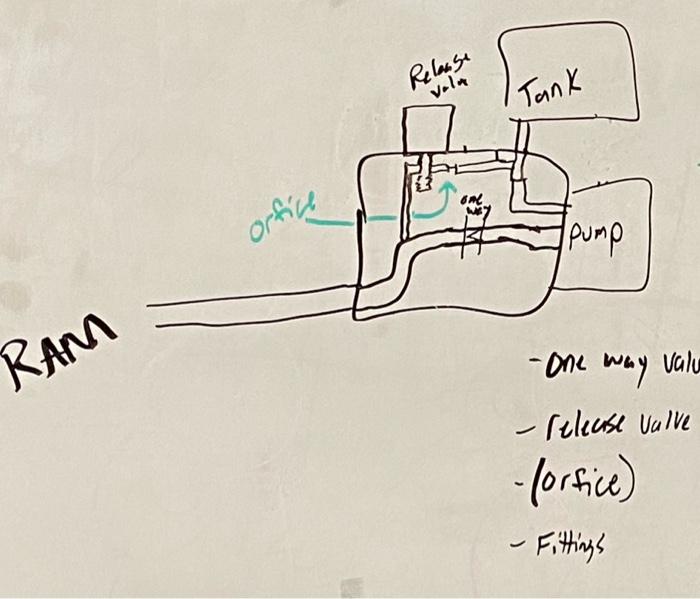 Release
valve
Tank
orfice
one
way
Pump
RAM
- One way valu
- release valve
- (orfice)
- Fittings